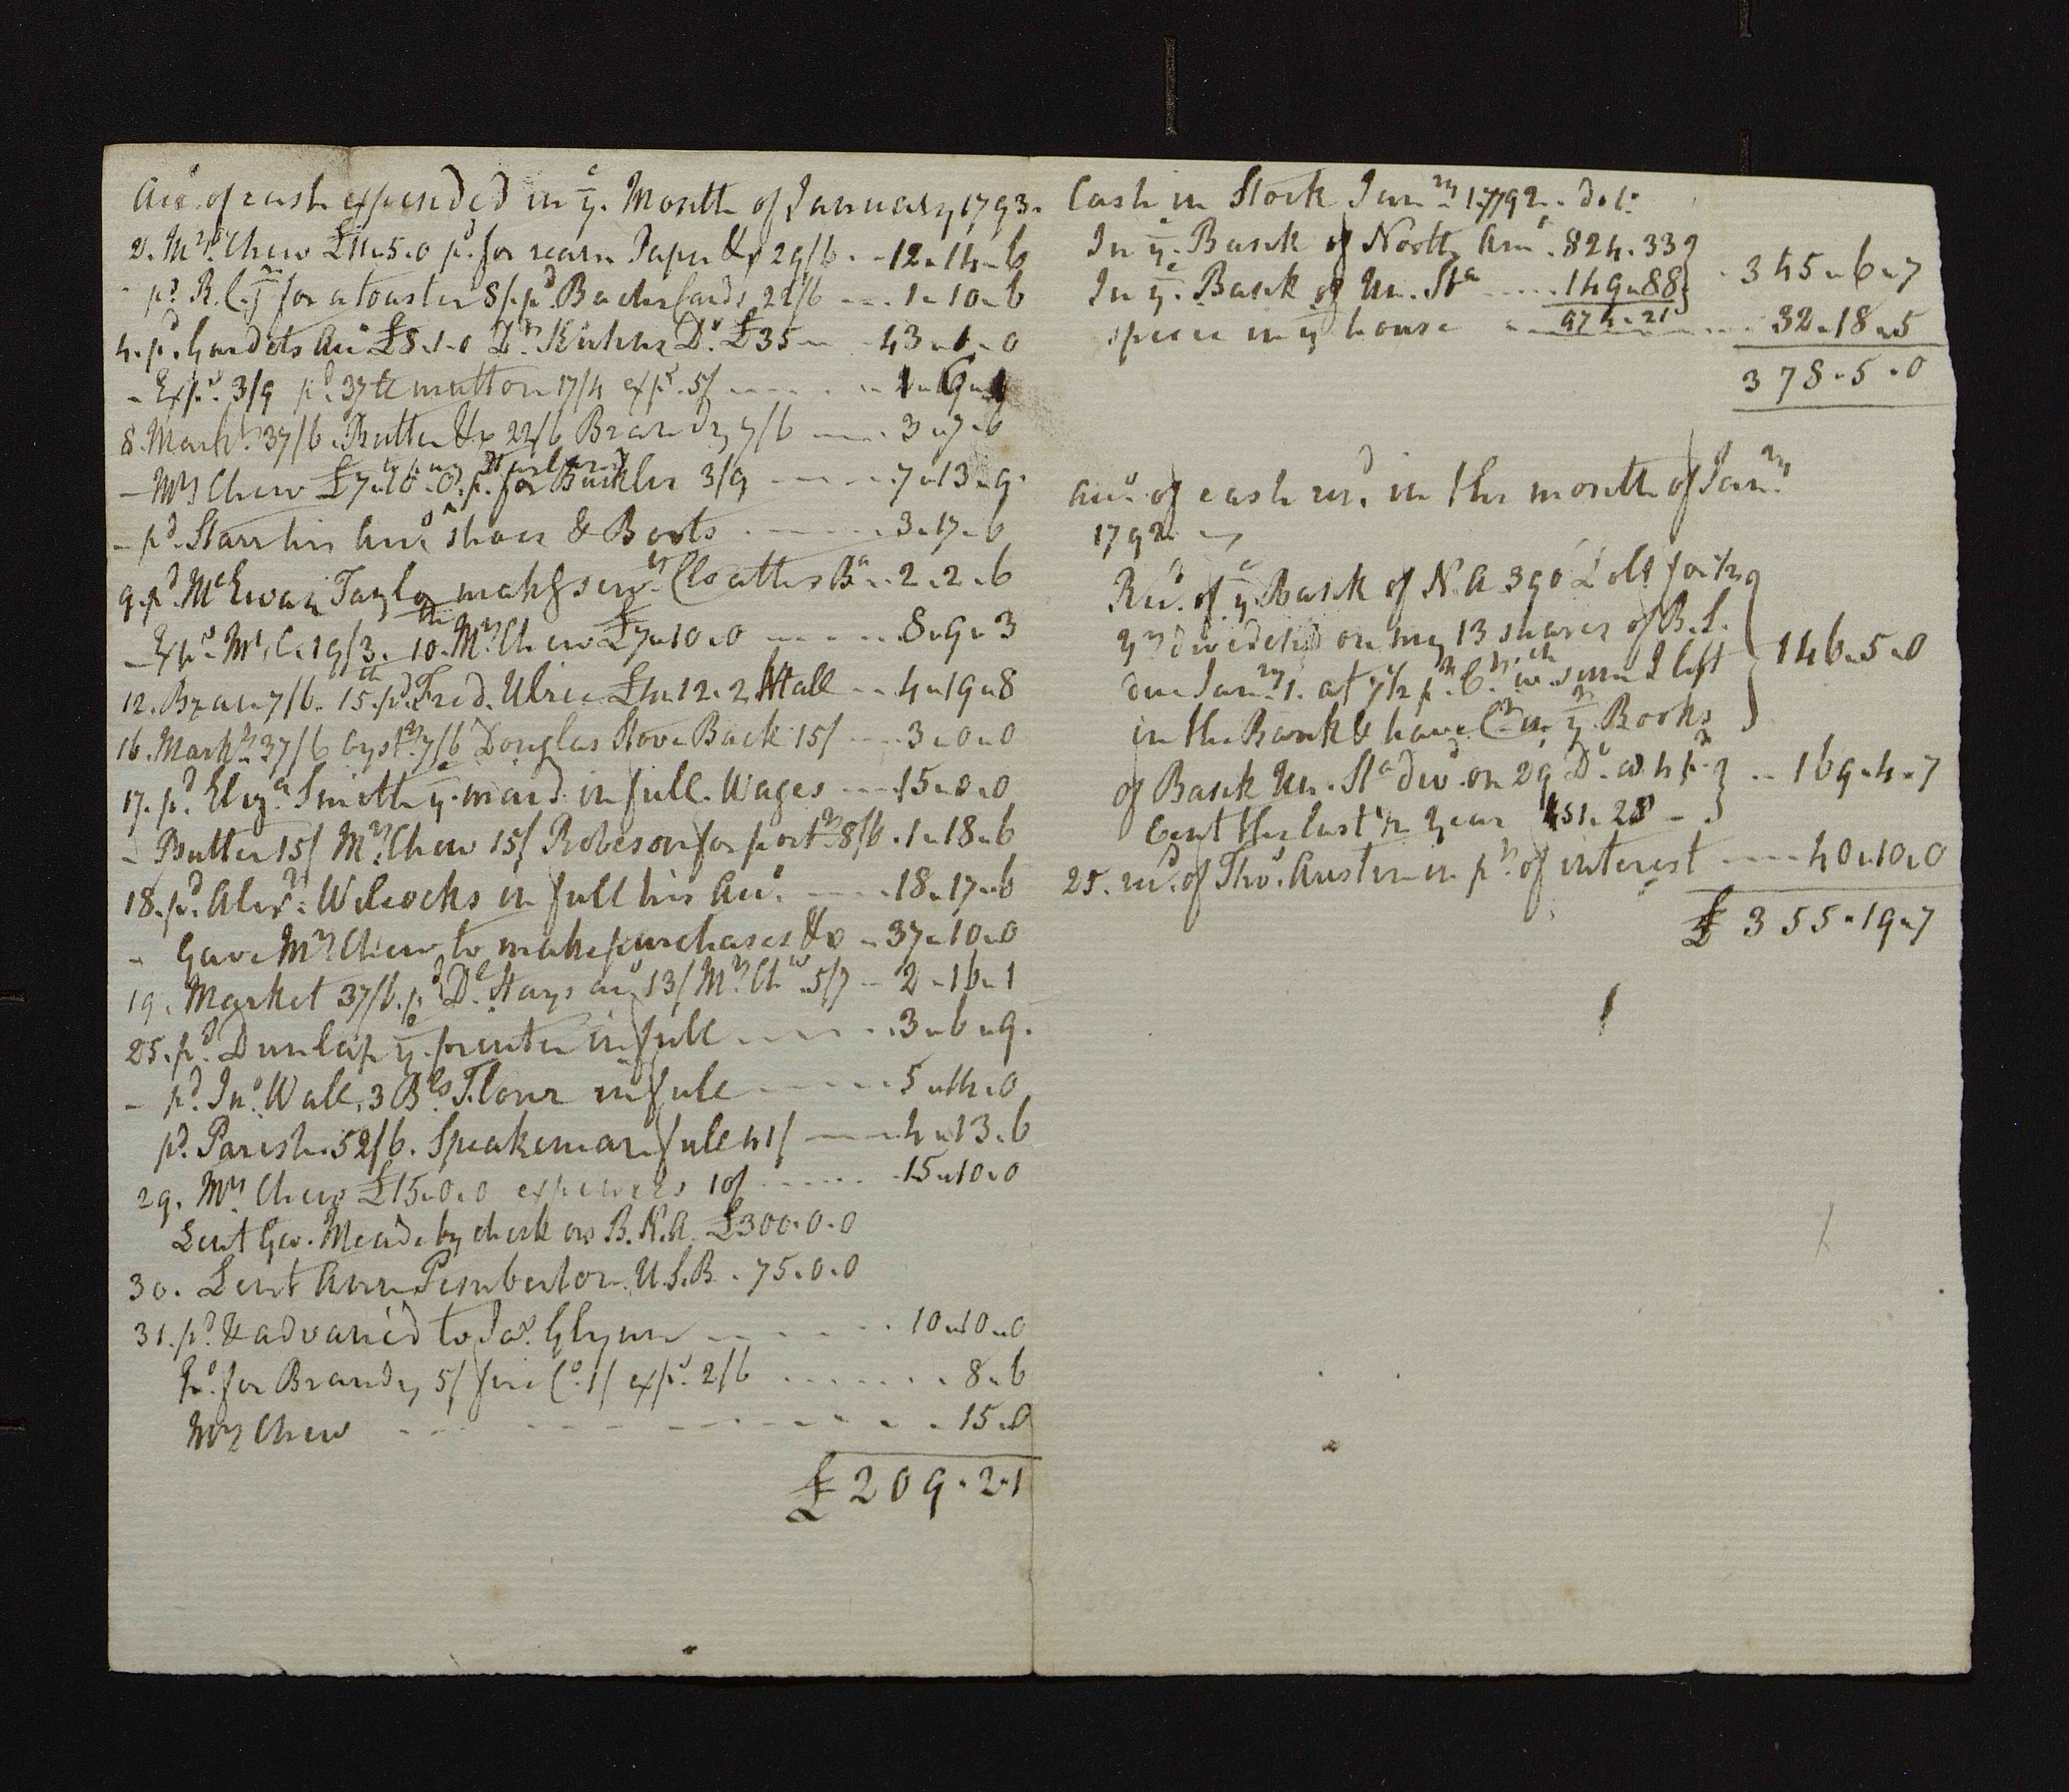 Acc.t of cash expended in y.e Month of January 1793.
2. M.rs Chew £11.5.0 p.d for ream Paper &c 29/6 - 12.14.6
- p.d R. C. for a toaster 8/. p.d Bacher Cards 22/6 - 1.10.6
4. p.d Gardets Acc.t £8.1.0 D.r Kuhns D.o £35 - 43.1.0
- Exp.s 3/9 p.d 37 lb mutton 17/4 exp.s 5/ - 1.6.1
8. Mark.t 37/6 Butter &c 22/6 Brandy 7/6 - 3.7.6
- M.rs Chew £7.10.0. p.d for Buckles 3/9 - 7.13.9.
- p.d Starr his Acc.t shoes & Boots - 3.17.6
9. p.d McEwan Taylor mak.g serv.ts Cloathes B.n - 2.2.6
- Exp.s M.r C. 19/3. 10.th M.rs Chew £7.10.0 - 8.9.3
12. Bran 7/6. 15.th p.d Fred. Ulric £4.12.2 - 4.19.8
16. Mark.t 37/6 Oyst.rs 7/6 Douglas Stove Back 15/ - 3.0.0
17. p.d Eliz.a Smith y.e maid in full. Wages - 15.0.0
- Butter 15/ M.rs Chew 15/ Robeson for port.r 8/6. 1.18.6
18. p.d Alex.r Wilcocks in full his Acc.t - 18.17.6
- Gave M.rs Chew to make purchases &c - 37.10.0
19. Market 37/6. p.d D.l Hays acc.t 13/ M.rs Ch.w 5/7 - 2.16.1
25. p.d Dunlap y.e printer in full - 3.6.9.
- p.d Jn.o Wall. 3 B.ls Flour in full - 5.14.0
p.d Parish. 52/6. Speakeman full 41/ - 4.13.6
29. M.rs Chew £15.0.0 expences 10/ - 15.10.0
Lent Geo. Meade by check on B.N.A. £300.0.0
30. Lent Ann Pemberton. U.S.B. 75.0.0
31. p.d & advanc'd to Ja.s Glynn - 10.10.0
P.d for Brandy 5/ fire C.o 1/ exp.s 2/6 - 8.6
M.rs Chew - 15.0
£209.2.1
Cash in Stock Jan.ry 1. 1792. Dol.s
In y.e Bank of North Am.a 824.33
In y.e Bank of Un. St.s 149.88 - 345.6.7
974.21
specie in y.e house - 32.18.5
378.5.0
Acc.t of cash rec.d in the month of Jan.ry
1792
Rec.d of y.e Bank of N.A 390 Dolls for 1/2
y.rs dividend on my 13 shares of B.S.
due Jan.ry 1. at 7 1/2 p.r C.t w.ch sum I left 146.5.0
in the Bank & have C.r in y.r Books
of Bank Un. St.s div.d on 29 D.o @ 4 p.r - 169.4.7
Cent the last 1/2 year 451.28
25. rec.d of Tho.s Austin in p.t of interest - 40.10.0
£355.19.7